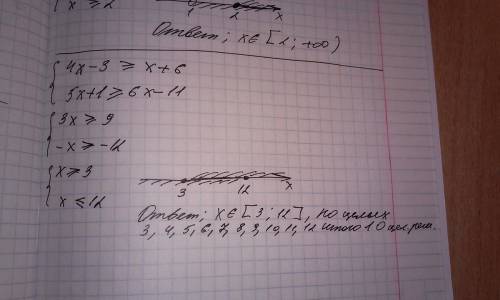 x ⩾ 2
1 2 x
Ответ; x∈[2; +∞)
4x-3 ⩾ x+6
5x+1 ⩾ 6x-11
3x ⩾ 9
-x ⩾ -12
x ⩾ 3
x ⩽ 12
3 12 x
Ответ; x∈[3; 12], но целых
3, 4, 5, 6, 7, 8, 9, 10, 11, 12 итого 10 цел. реш.